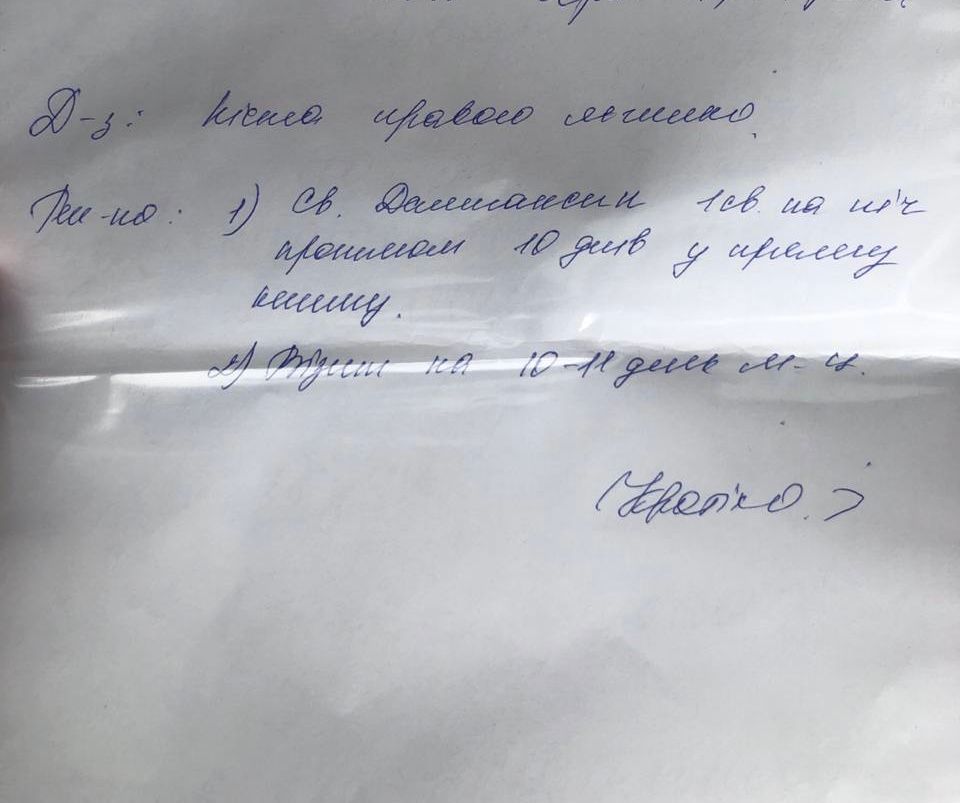 Д-з: Кіста правого яєчника.
Рек-но: 1) Св. Далмаксин 1св. на ніч
протягом 10 днів у пряму
кишку.
2) Візит на 10-11 день м-ц.